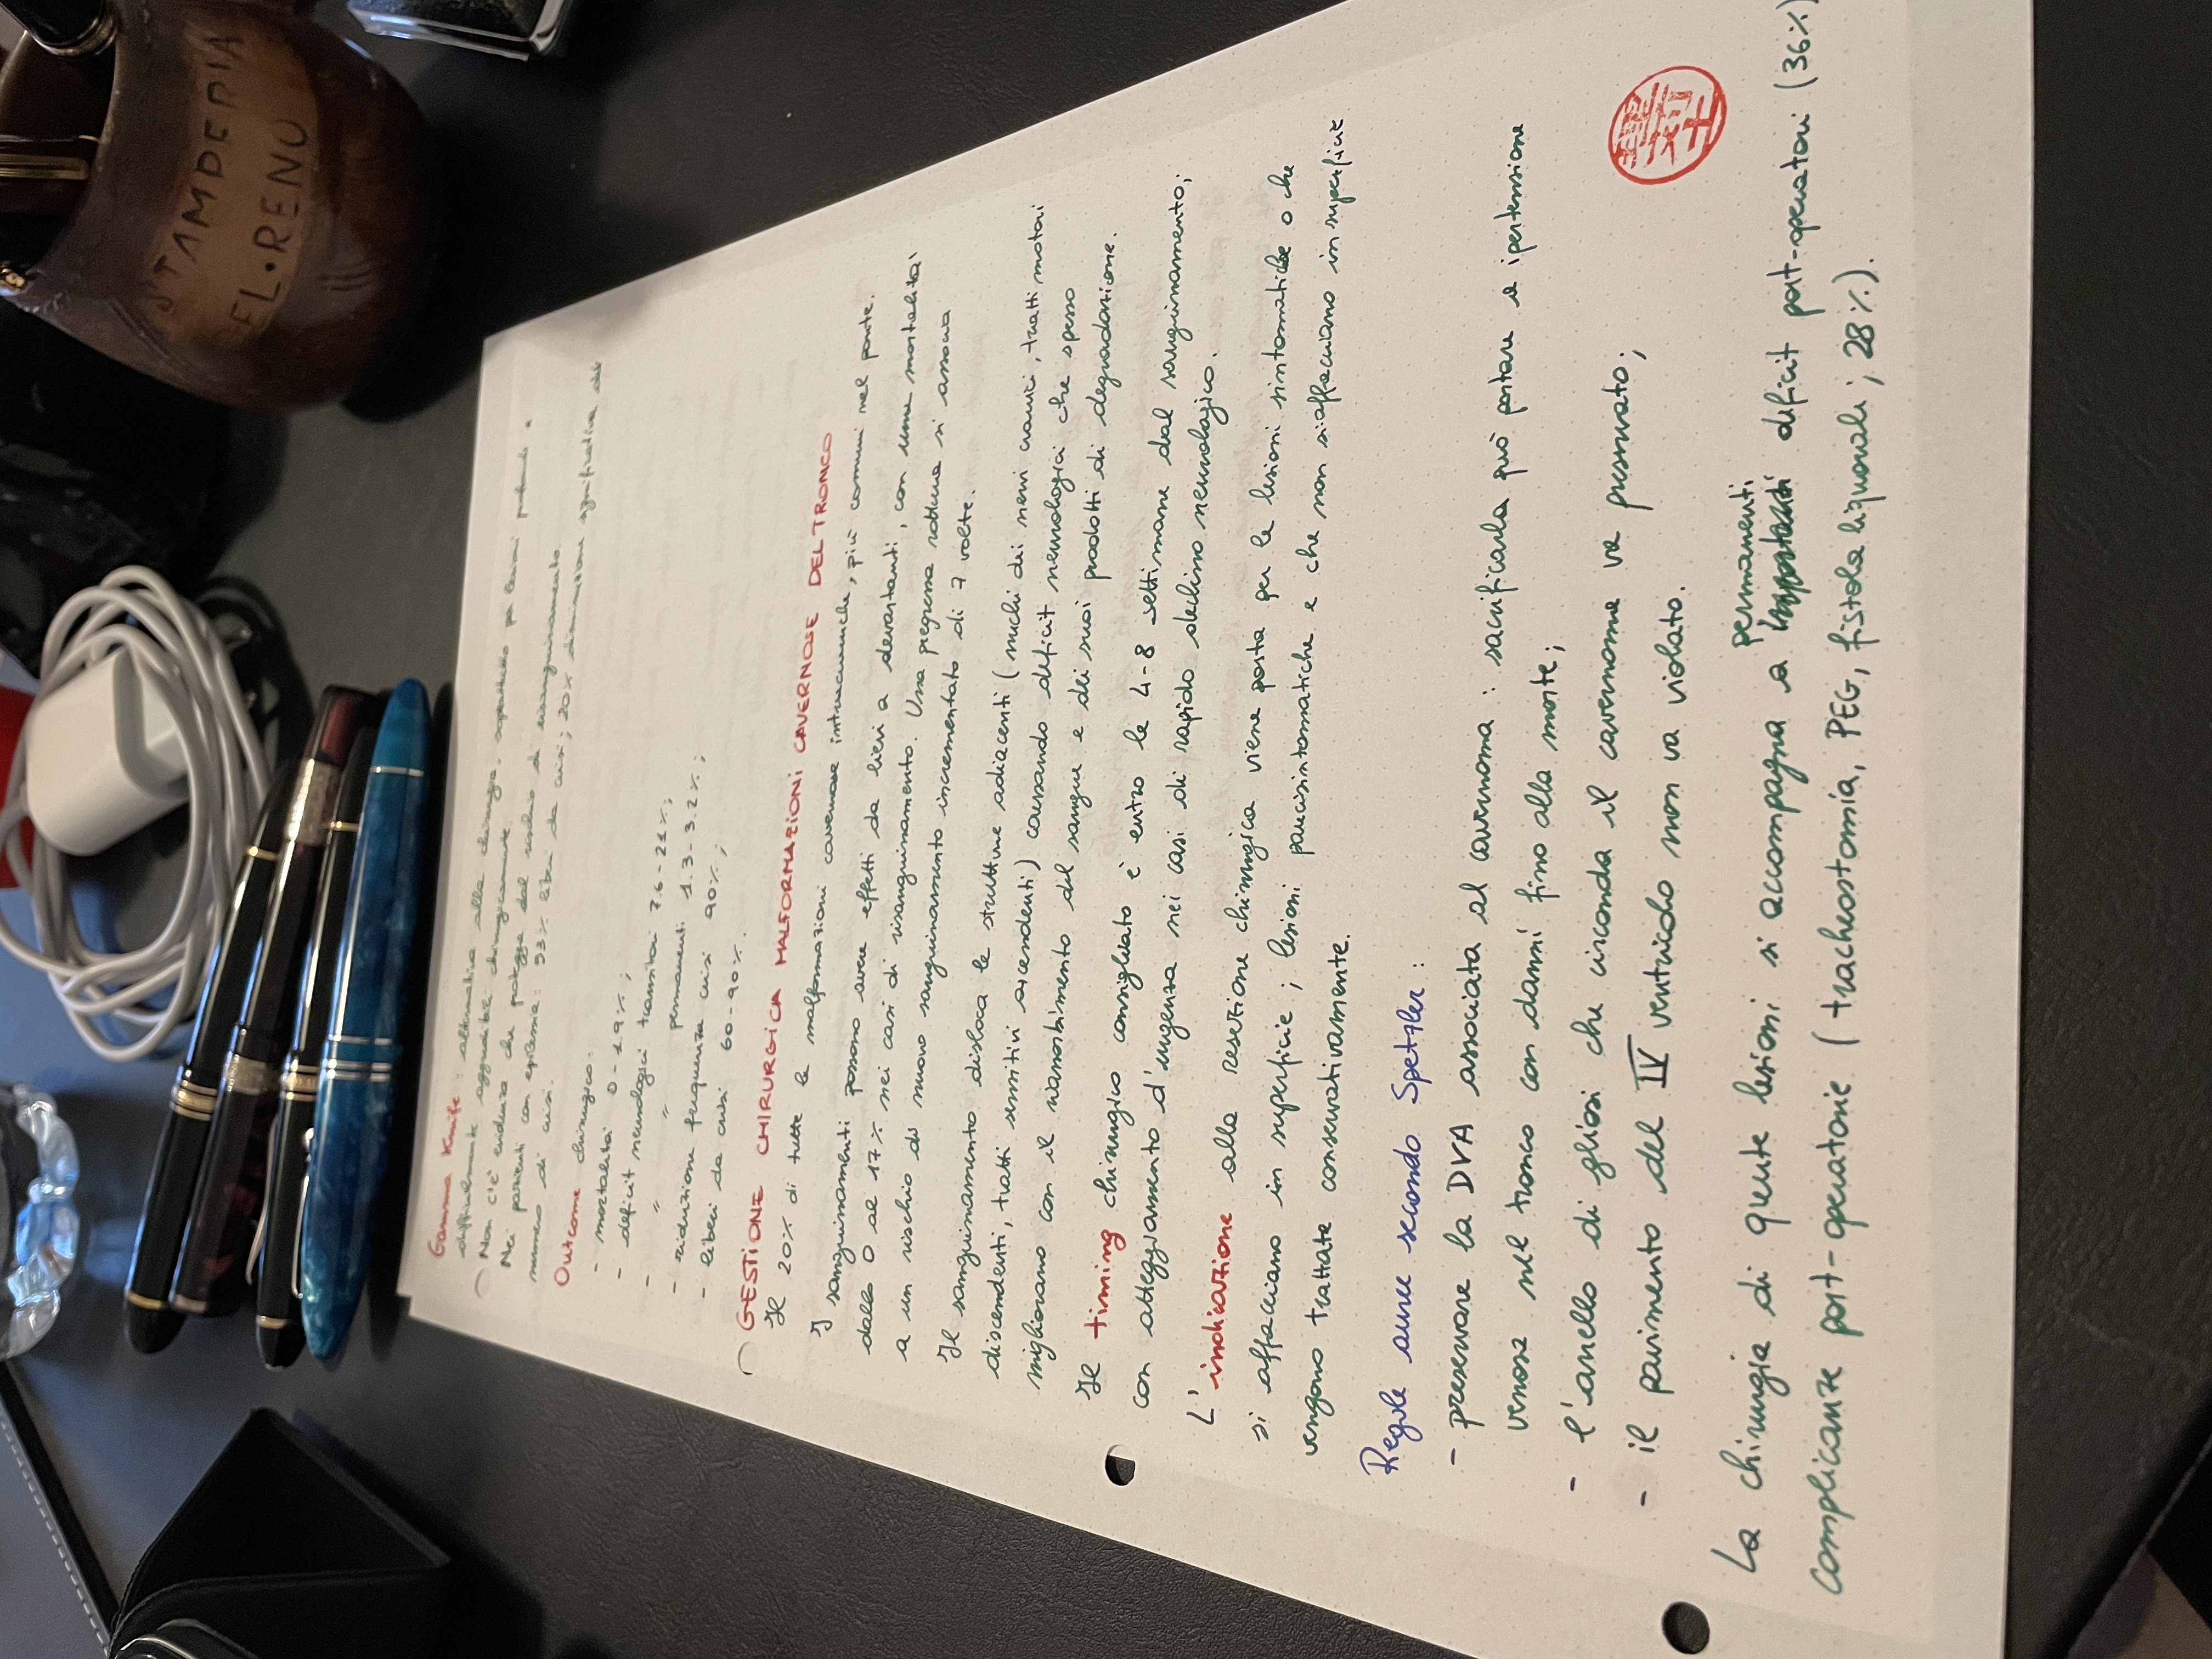 STAMPERIA
DEL RENO
Gamma Knife: alternativa alla chirurgia, soprattutto per lesioni profonde e
difficilmente aggredibili chirurgicamente.
Non c'è evidenza che protegga dal rischio di risanguinamento.
Nei pazienti con epilessia: 53% liberi da crisi; 20% diminuzione significativa del
numero di crisi.
Outcome chirurgico:
- mortalità 0-1.9%;
- deficit neurologici transitori 7.6-21%;
- " " permanenti 1.3-3.2%;
- riduzione frequenza crisi 90%;
- liberi da crisi 60-90%.
GESTIONE CHIRURGICA MALFORMAZIONI CAVERNOSE DEL TRONCO
Il 20% di tutte le malformazioni cavernose intracraniche, più comuni nel ponte.
I sanguinamenti possono avere effetti da lievi a devastanti, con una mortalità
dallo 0 al 17% nei casi di risanguinamento. Una pregressa rottura si associa
a un rischio di nuovo sanguinamento incrementato di 7 volte.
Il sanguinamento disloca le strutture adiacenti (nuclei dei nervi cranici, tratti motori
discendenti, tratti sensitivi ascendenti) causando deficit neurologici che spesso
migliorano con il riassorbimento del sangue e dei suoi prodotti di degradazione.
Il timing chirurgico consigliato è entro le 4-8 settimane dal sanguinamento;
con atteggiamento d'urgenza nei casi di rapido declino neurologico.
L'indicazione alla resezione chirurgica viene posta per le lesioni sintomatiche o che
si affacciano in superficie; lesioni paucisintomatiche e che non si affacciano in superficie
vengono trattate conservativamente.
Regole auree secondo Spetzler:
- preservare la DVA associata al cavernoma: sacrificarla può portare a ipertensione
venosa nel tronco con danni fino alla morte;
- l'anello di gliosi che circonda il cavernoma va preservato;
- il pavimento del IV ventricolo non va violato.
La chirurgia di queste lesioni si accompagna a permanenti deficit post-operatori (36%)
Complicanze post-operatorie (tracheostomia, PEG, fistole liquorali; 28%).